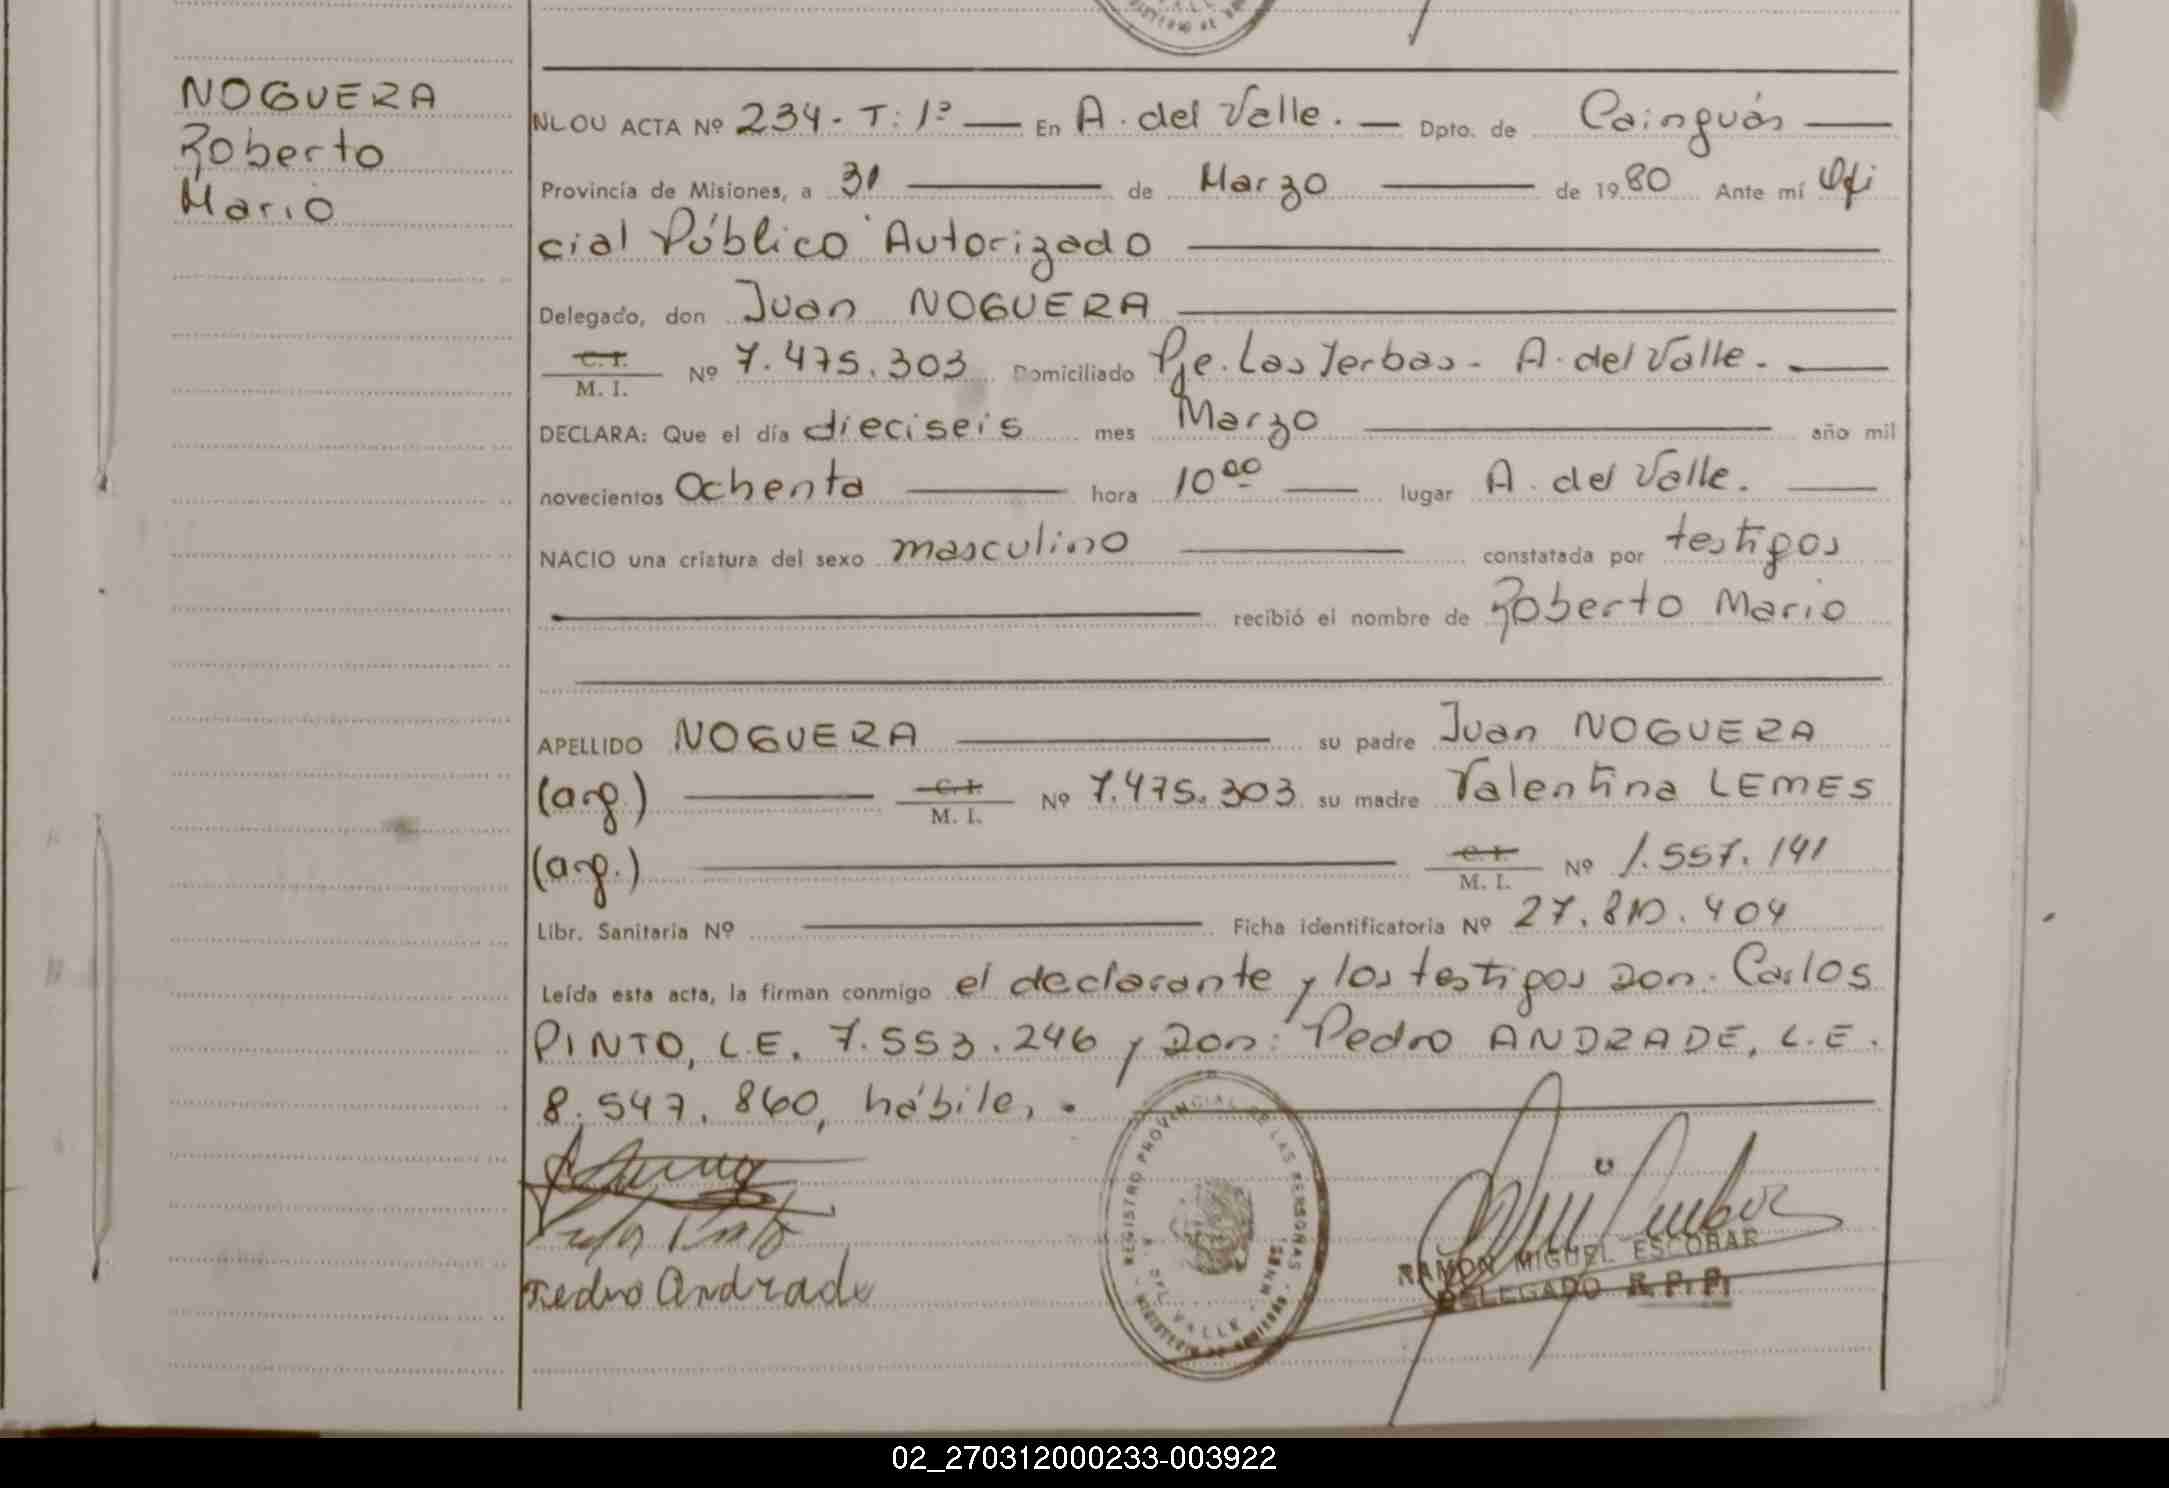 NOGUERA
Roberto
Mario
NLOU ACTA Nº 234 - T: 1º — En A. del Valle. — Dpto. de Cainguás —
Provincia de Misiones, a 31 — de Marzo — de 1980 Ante mí Ofi
cial Público Autorizado
Delegado, don Juan NOGUERA
C. I. / M. I. Nº 7.475.303 Domiciliado Pje. Las Yerbas - A. del Valle. —
DECLARA: Que el día dieciseis mes Marzo — año mil
novecientos Ochenta — hora 10 00 — lugar A. del Valle. —
NACIO una criatura del sexo masculino — constatada por testigos
— recibió el nombre de Roberto Mario
APELLIDO NOGUERA — su padre Juan NOGUERA
(arg.) — C. I. / M. I. Nº 7.475.303 su madre Valentina LEMES
(arg.) — C. I. / M. I. Nº 1.557.141
Libr. Sanitaria Nº — Ficha identificatoria Nº 27.810.404
Leída esta acta, la firman conmigo el declarante y los testigos Don: Carlos
PINTO, L.E. 7.553.246 y Don: Pedro ANDRADE, L.E.
8.547.860, hábiles.
REGISTRO PROVINCIAL DE LAS PERSONAS
A. DEL VALLE - MNES.
MINISTERIO DE GOBIERNO
Pedro Andrade
RAMON MIGUEL ESCOBAR
DELEGADO R. P. P.
02_270312000233-003922